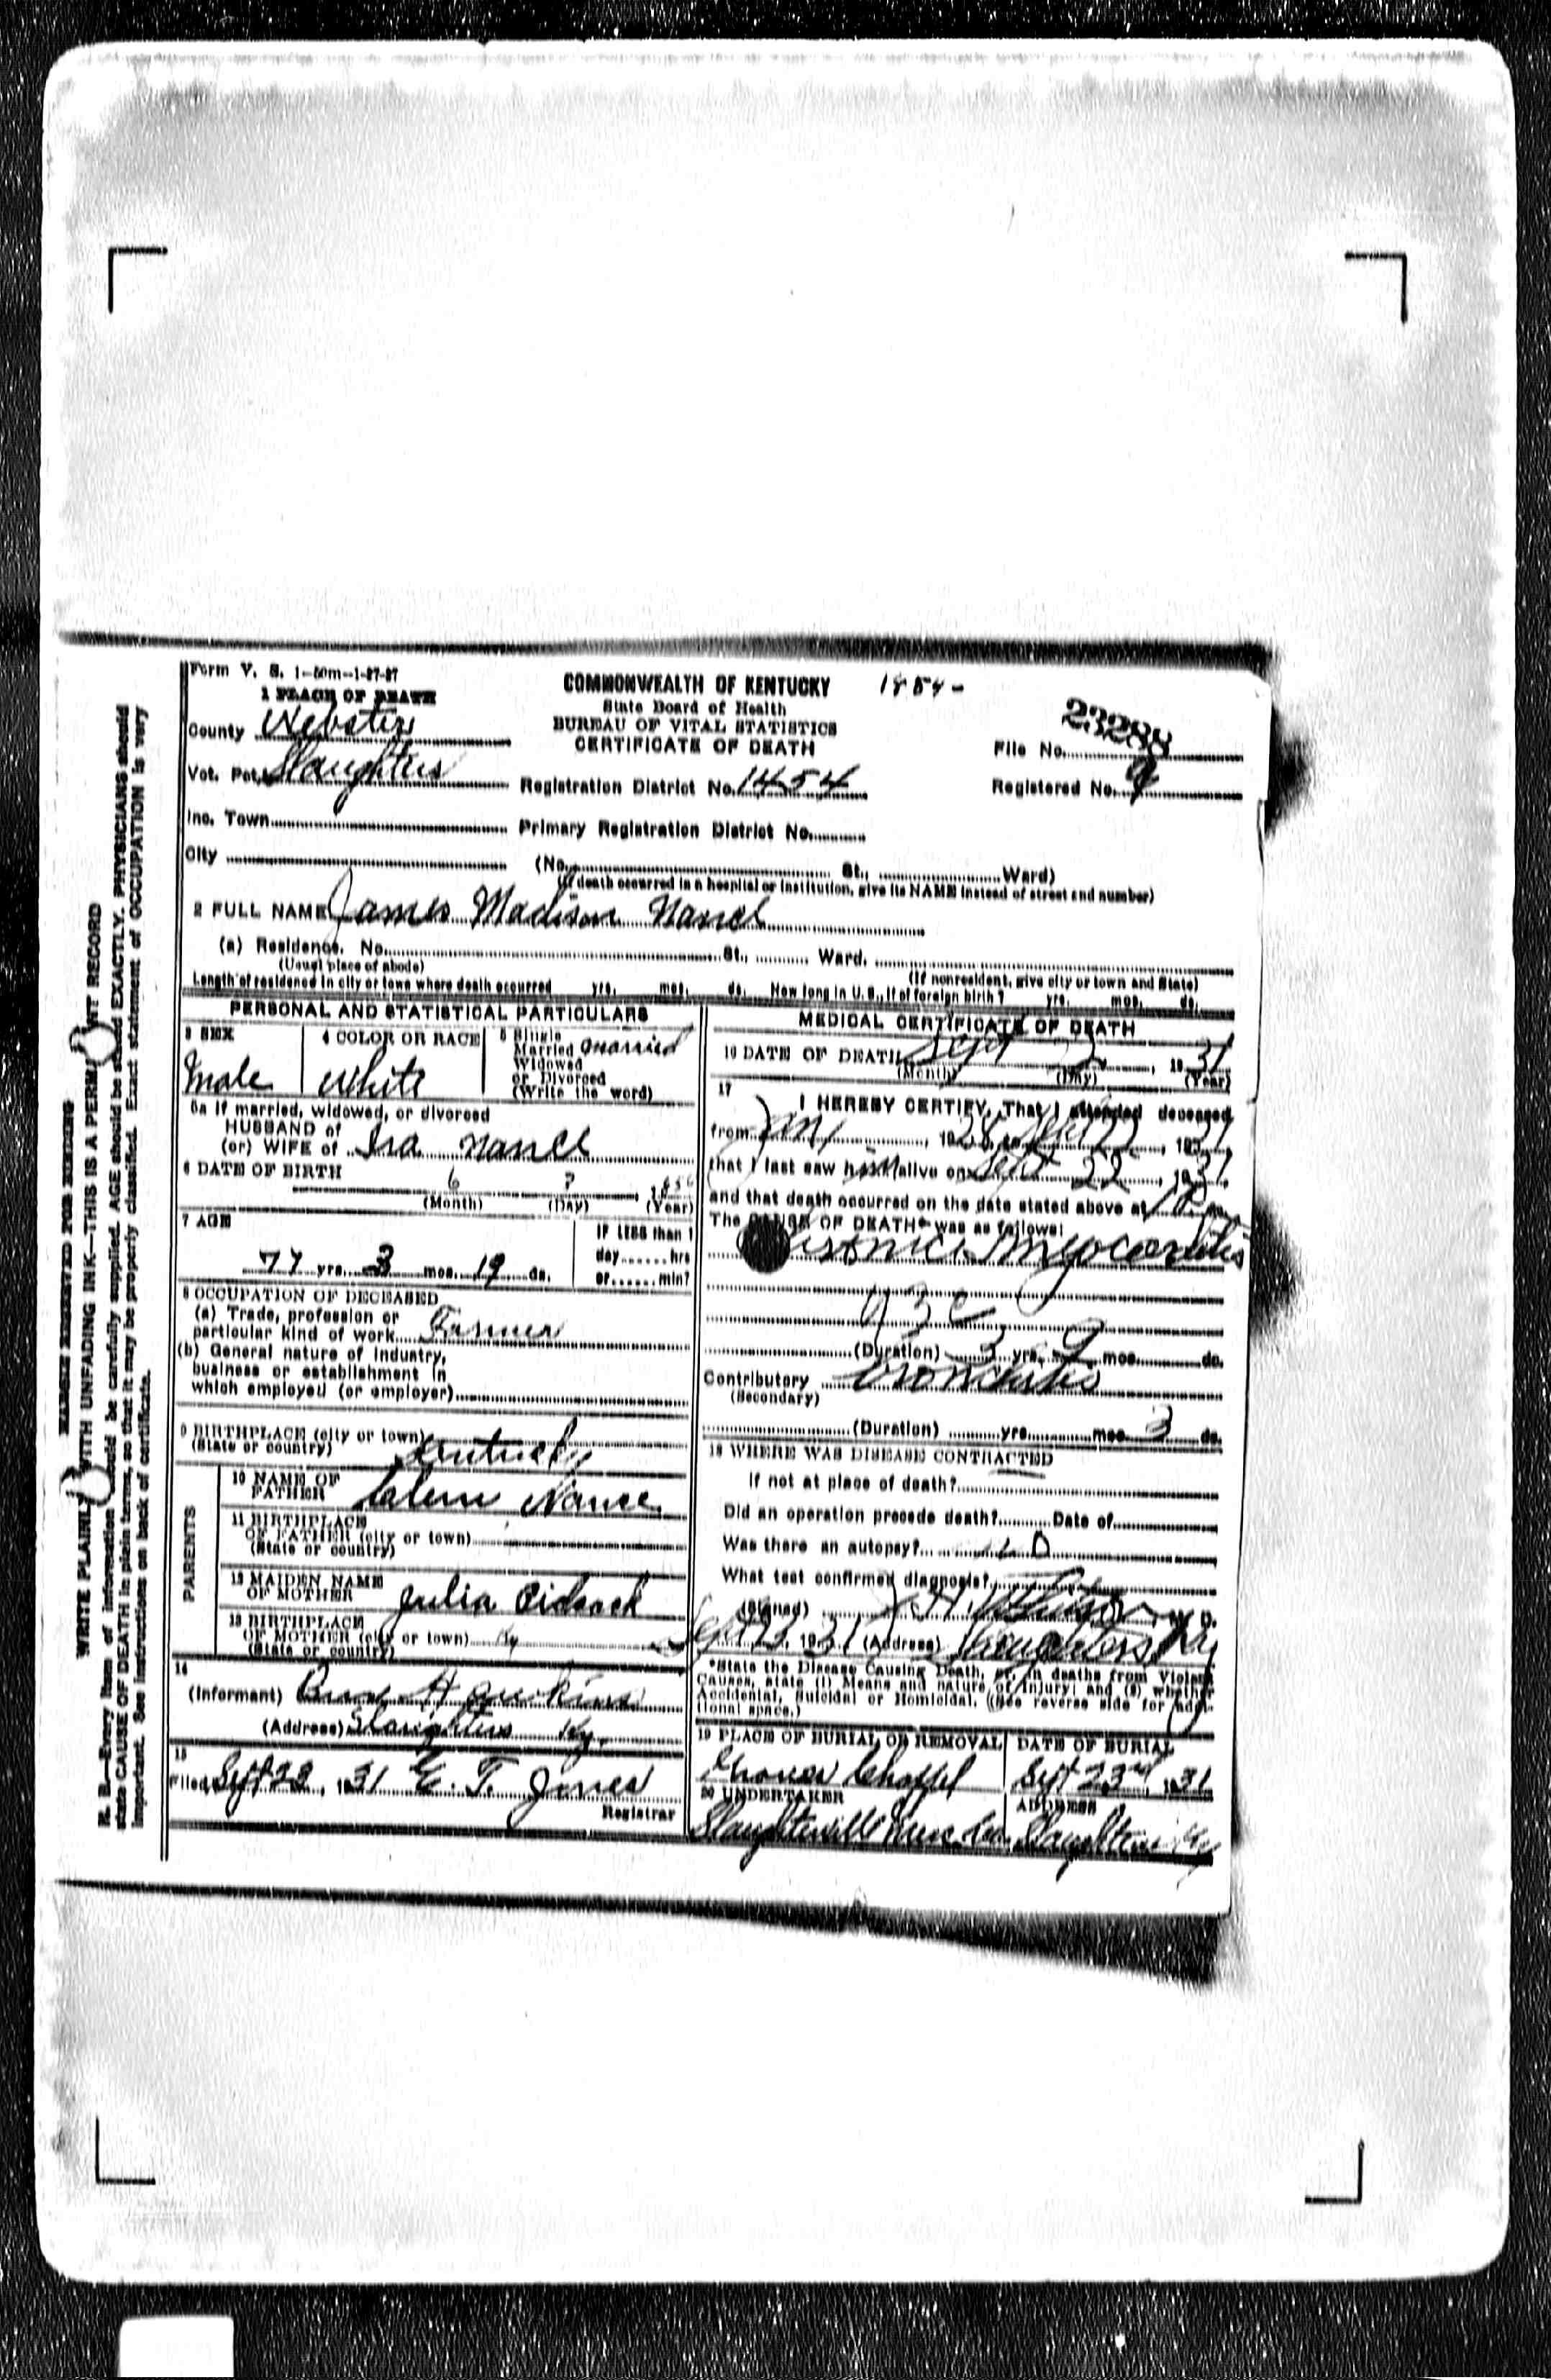 Form V. S. 1-50m-1-27-27
1 PLACE OF DEATH
COMMONWEALTH OF KENTUCKY 1454-
State Board of Health
BUREAU OF VITAL STATISTICS
CERTIFICATE OF DEATH
County Webster
File No. 23288
Vot. Pct. Slaughters
Registration District No. 1454
Registered No. 9
Inc. Town
Primary Registration District No.
City
(No. St., Ward)
(If death occurred in a hospital or institution, give its NAME instead of street and number)
2 FULL NAME James Madison Nance
(a) Residence. No. St., Ward.
(Usual place of abode)
(If nonresident, give city or town and State)
Length of residence in city or town where death occurred yrs. mos. ds. How long in U. S., if of foreign birth? yrs. mos. ds.
PERSONAL AND STATISTICAL PARTICULARS
3 SEX
Male
4 COLOR OR RACE
White
5 Single
Married married
Widowed
or Divorced
(Write the word)
5a If married, widowed, or divorced
HUSBAND of
(or) WIFE of Ira Nance
6 DATE OF BIRTH
6 3
(Month) (Day) (Year)
7 AGE
77 yrs. 3 mos. 19 ds.
IF LESS than 1
day hrs
or min?
8 OCCUPATION OF DECEASED
(a) Trade, profession or
particular kind of work Farmer
(b) General nature of industry,
business or establishment in
which employed (or employer)
9 BIRTHPLACE (city or town)
(State or country) Kentucky
PARENTS
10 NAME OF
FATHER Clem Nance
11 BIRTHPLACE
OF FATHER (city or town)
(State or country)
12 MAIDEN NAME
OF MOTHER Julia
13 BIRTHPLACE
OF MOTHER (city or town) Ky
(State or country)
14
(Informant) Hawkins
(Address) Slaughters Ky.
15
Filed Sept 23, 1931 E. T. Jones
Registrar
MEDICAL CERTIFICATE OF DEATH
16 DATE OF DEATH Sept 1931
(Month) (Day) (Year)
17
I HEREBY CERTIFY, That I attended deceased
from 1928 to Sept 22, 1931
that I last saw him alive on Sept 22, 1931,
and that death occurred on the date stated above at m.
The CAUSE OF DEATH* was as follows:
Chronic Myocarditis
(Duration) 3 yrs. mos. ds.
Contributory Bronchitis
(Secondary)
(Duration) yrs. mos. 3 ds.
18 WHERE WAS DISEASE CONTRACTED
If not at place of death?
Did an operation precede death? Date of
Was there an autopsy? no
What test confirmed diagnosis?
(Signed) M. D.
Sept 23, 1931 (Address) Slaughters Ky
*State the Disease Causing Death, or, in deaths from Violent
Causes, state (1) Means and nature of Injury; and (2) whether
Accidental, Suicidal or Homicidal. (See reverse side for addi-
tional space.)
19 PLACE OF BURIAL OR REMOVAL
Chapel
DATE OF BURIAL
Sept 23rd, 1931
20 UNDERTAKER
ADDRESS
Slaughters Ky
MARGIN RESERVED FOR BINDING
WRITE PLAINLY WITH UNFADING INK—THIS IS A PERMANENT RECORD
N. B.—Every item of information should be carefully supplied. AGE should be stated EXACTLY. PHYSICIANS should
state CAUSE OF DEATH in plain terms, so that it may be properly classified. Exact statement of OCCUPATION is very
important. See instructions on back of certificate.